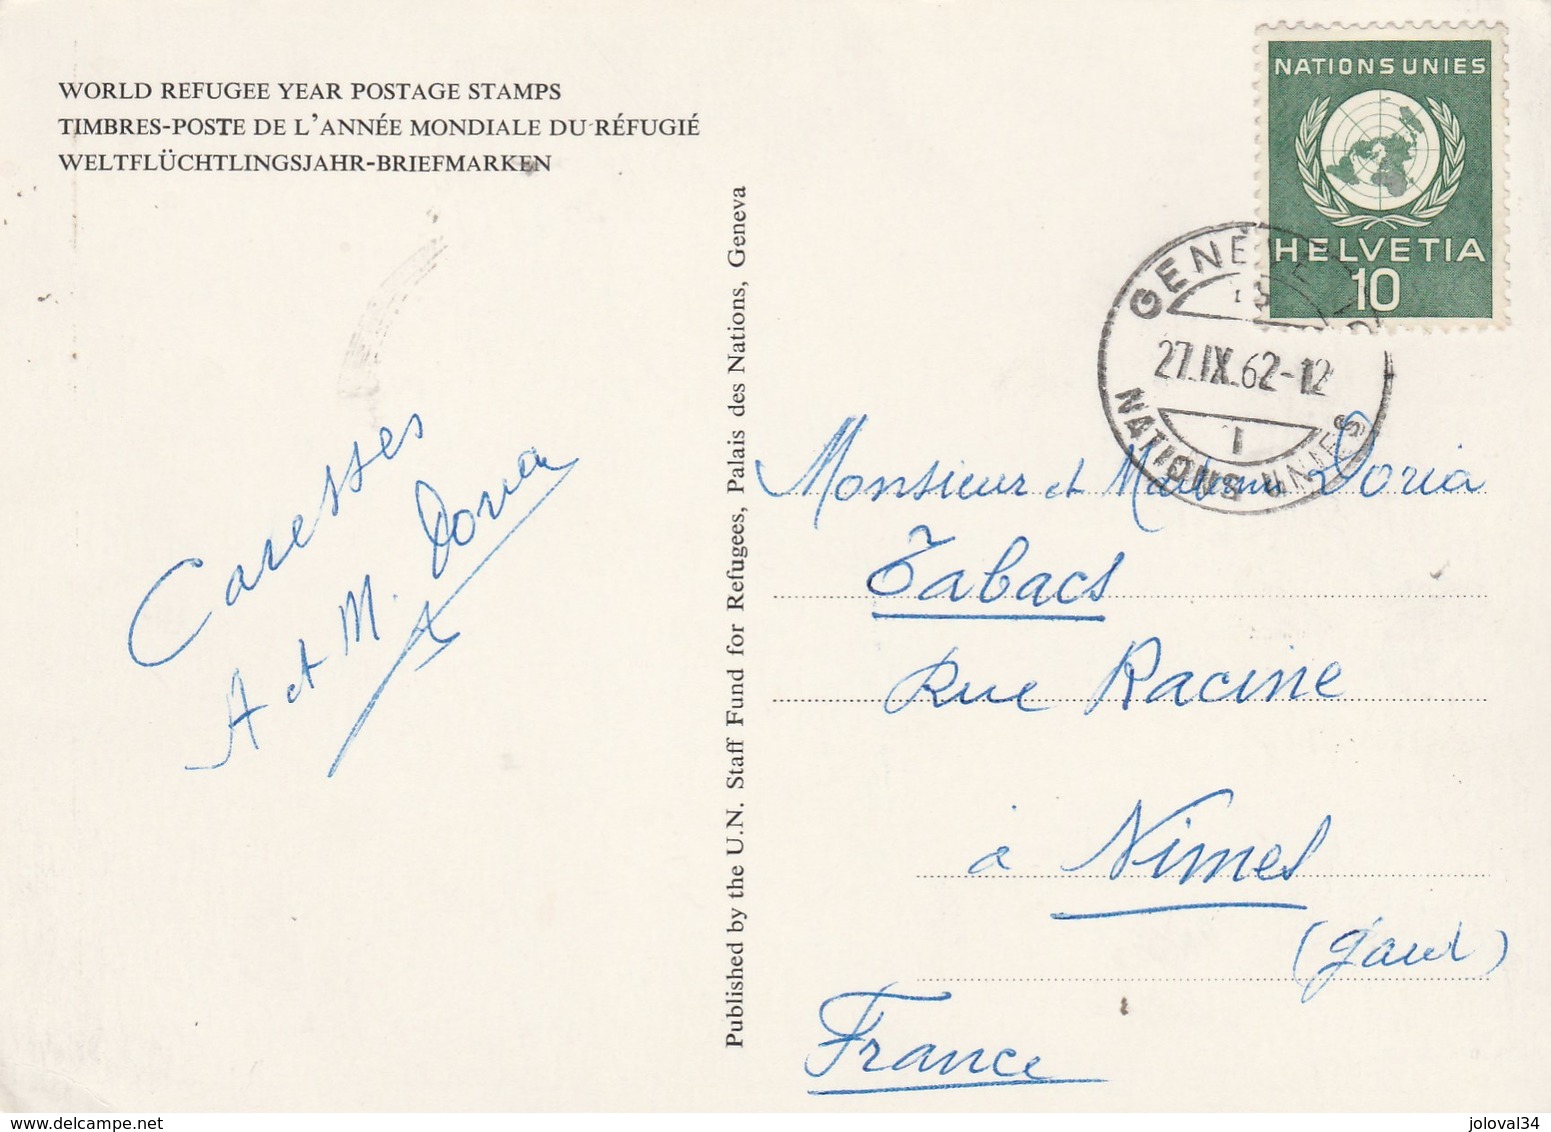 WORLD REFUGEE YEAR POSTAGE STAMPS
TIMBRES-POSTE DE L'ANNÉE MONDIALE DU RÉFUGIÉ
WELTFLÜCHTLINGSJAHR-BRIEFMARKEN
Caresses
A et M. Doria
Published by the U.N. Staff Fund for Refugees, Palais des Nations, Geneva
NATIONS UNIES
HELVETIA
10
GENÈVE
27.IX.62-12
1
NATIONS UNIES
Monsieur et Madame Doria
Tabacs
Rue Racine
à Nimes
(Gard)
France
joloval34